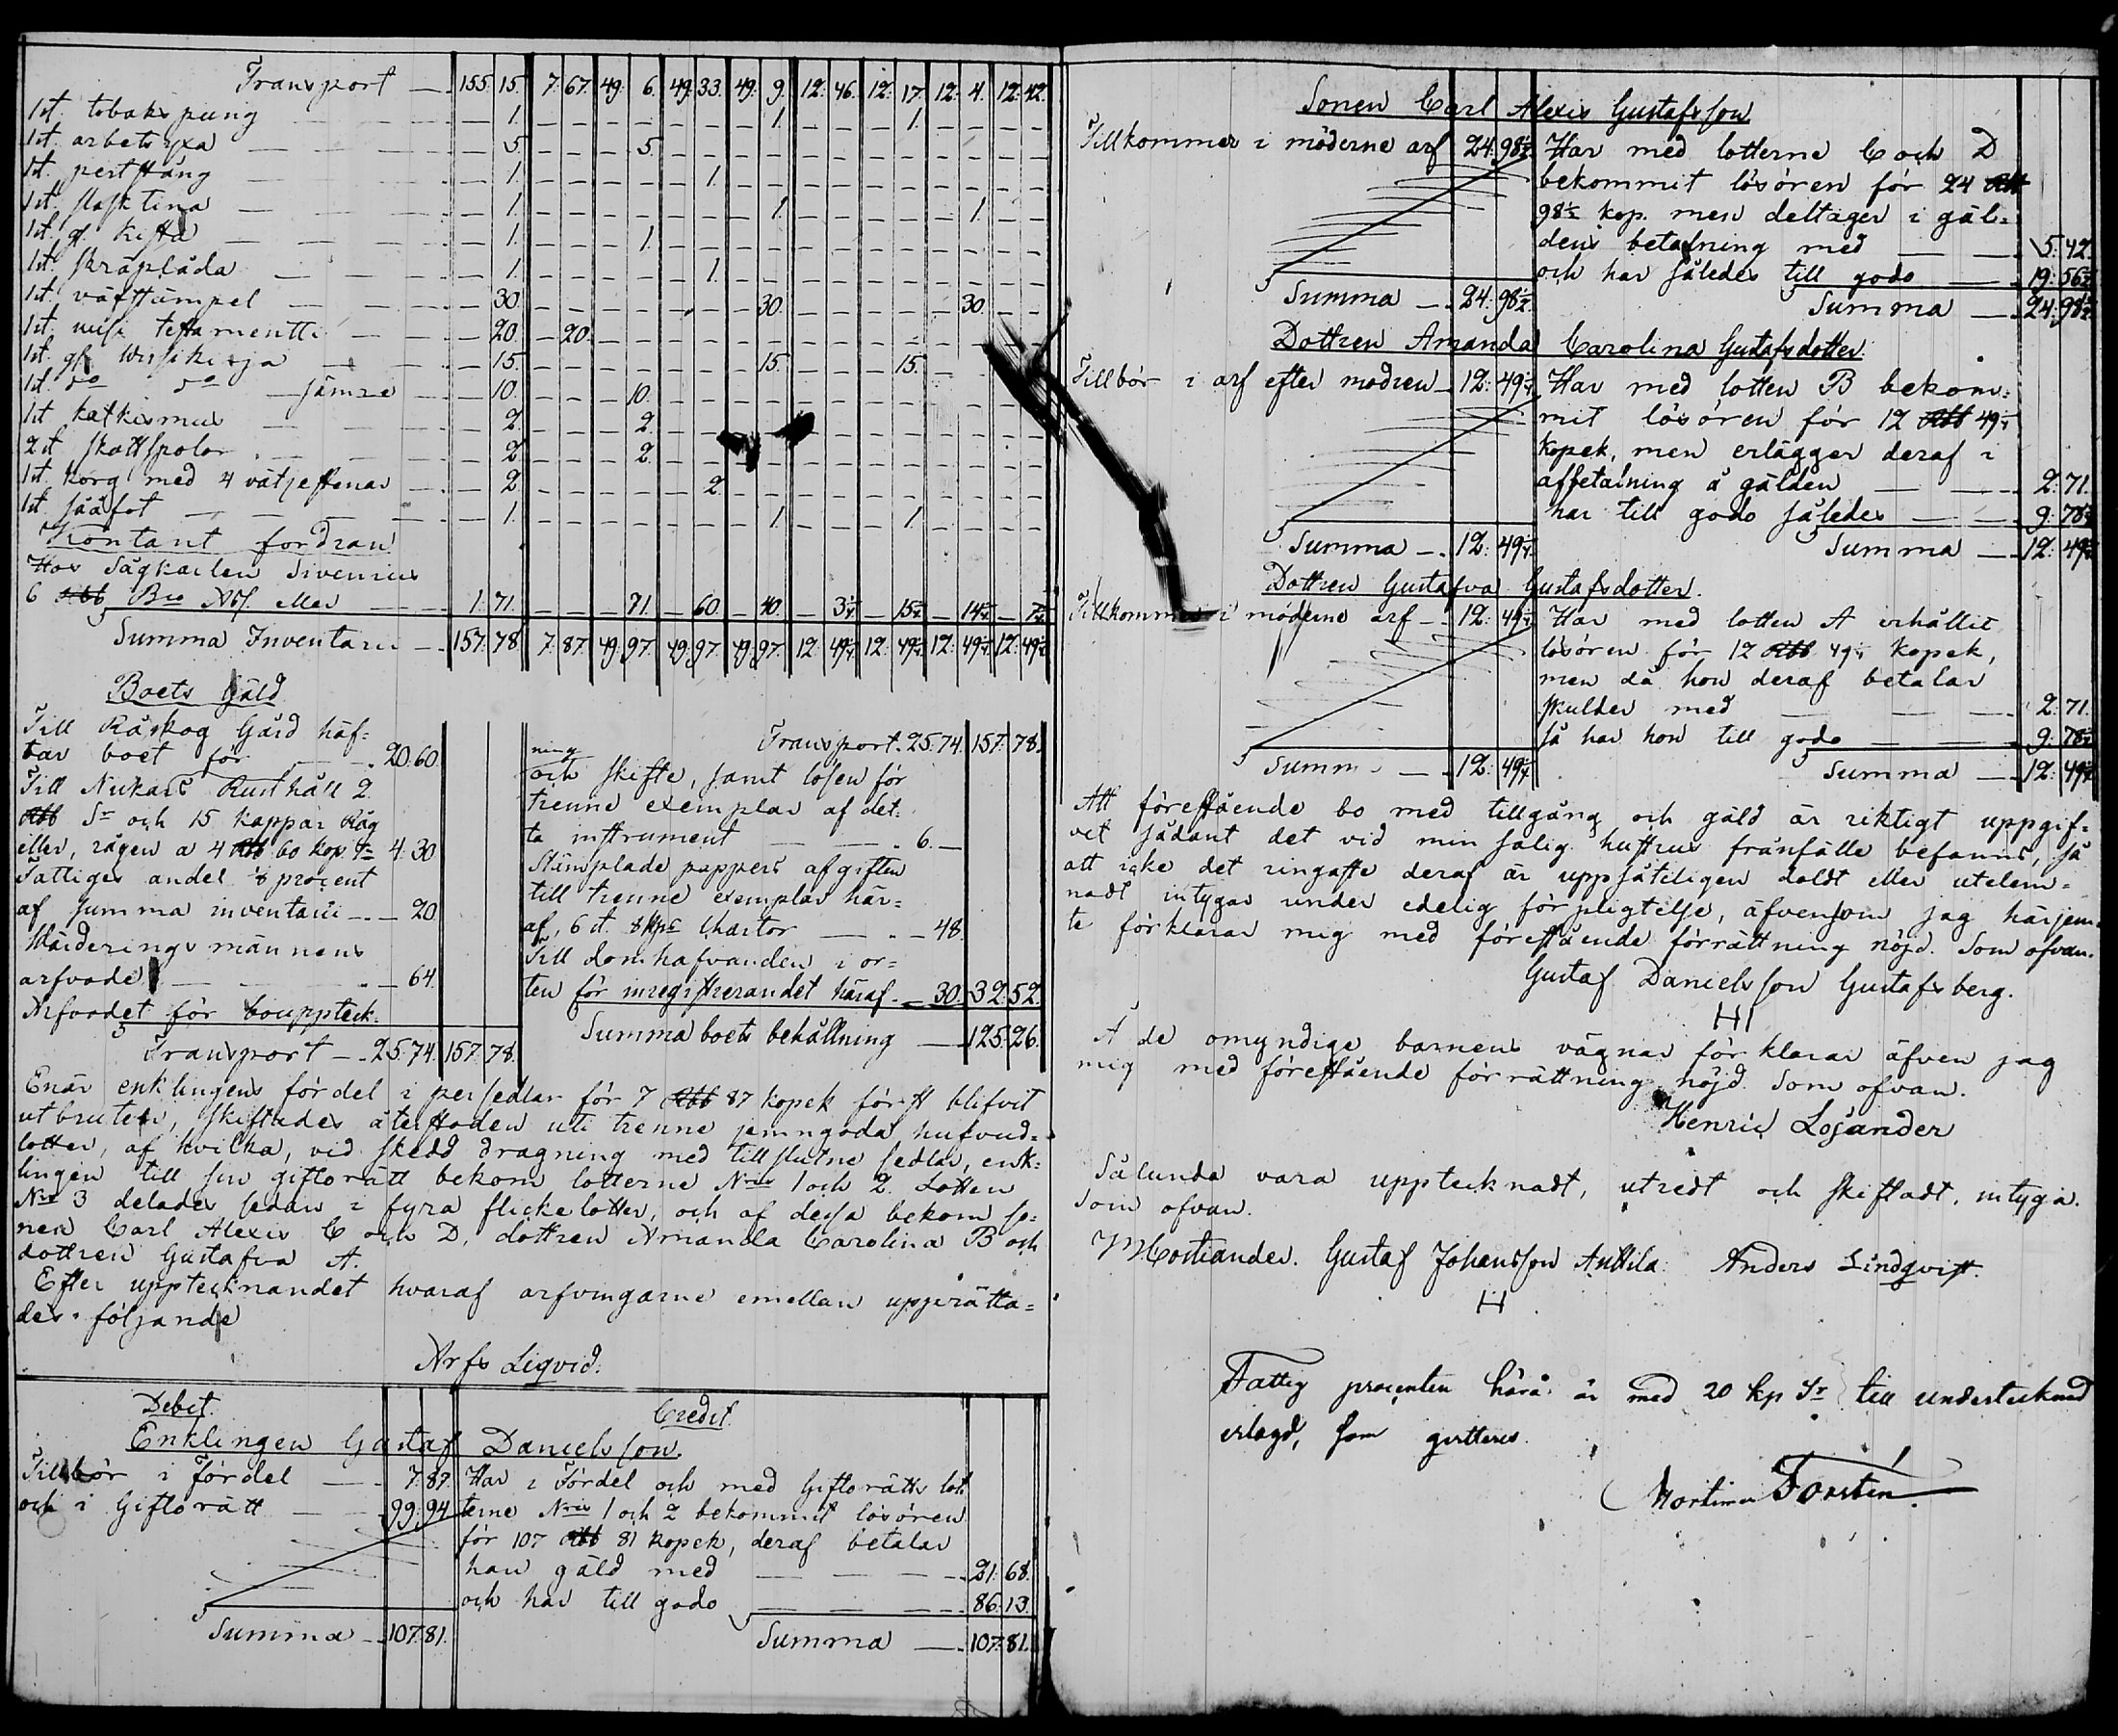 Transport — 155. 15. 7. 67. 49. 6. 49. 33. 49. 9. 12. 46. 12. 17. 12. 4. 12. 42.
1 st. tobaks pung — 1. 1. 1.
1 st. arbets yxa — 5. 5.
1 st. pertstång — 1. 1.
1 st. slaktina — 1. 1. 1.
1 st. gl. kista — 1. 1.
1 st. skräplåda — 1. 1.
1 st. väfstämpel — 30. 30. 30.
1 st. testamente — 20. 20.
1 st. gl. — 15. 15. 15.
1 st. do do sämre — 10. 10.
1 st. katkesmus — 2. 2.
2 st. skottspolar — 2. 2.
1 st. korg med 4 — 2. 2.
1 st. sååfot — 1. 1. 1.
Kontant fordran
Hos Sågkarlen Sivenius
6 Rbl Bco Ass. eller — 1. 71. 71. 60. 40. 3¼ 15¼ 14¼ 7¼
Summa Inventarii — 157. 78. 7. 87. 49. 97. 49. 97. 49. 97. 12. 49¼ 12. 49¼ 12. 49¼ 12. 49¼
Boets Gäld
Till Råskog Gård häf-
tar boet för — 20. 60.
Till Nukars Rusthåll 2
Rbl Sr och 15 kappar Råg
eller, rågen a 4 Rbl 60 kop. Sr 4. 30
Fattiges andel ⅛ procent
af summa inventarii — 20
Värderings männens
arfvode — 64.
Arfvodet för bouppteck-
Transport — 25. 74. 157. 78.
Transport. 25. 74. 157. 78.
ning
och skifte, samt lösen för
trenne exemplar af det-
ta instrument — 6. —
Stämplade pappers afgiften
till trenne exemplar här-
af, 6 st. 8 kps Chartor — 48.
Till domhafvanden i or-
ten för inregistrerandet häraf — 30. 32. 52.
Summa boets behållning — 125. 26.
Enär enklingens fördel i persedlar för 7 Rbl 87 kopek först blifvit
utbruten, skiftades återstoden uti trenne jemngoda hufvud-
lotter, af hvilka, vid skedd dragning med tillslutne sedlar, enk-
lingen till sin giftorätt bekom lotterne Nris 1 och 2. Lotten
Nro 3 delades sedan i fyra flickelotter, och af dessa bekom so-
nen Carl Alexis C och D, dottren Amanda Carolina B och
dottren Gustafva A.
Efter upptecknandet hvaraf arfvingarne emellan upprätta-
des följande
Arfs Liqvid.
Debit. Credit.
Enklingen Gustaf Danielsson.
Tillbör i Fördel — 7. 87.
och i Giftorätt — 99. 94
Summa — 107. 81.
Har i Fördel och med Giftorätts lot-
terne Nris 1 och 2 bekommit lösören
för 107 Rbl 81 kopek, deraf betalar
han gäld med — 21. 68.
och har till godo — 86. 13.
Summa — 107. 81.
Sonen Carl Alexis Gustafsson
Tillkommer i möderne arf 24. 98½
Summa — 24. 98½
Har med lotterne C och D
bekommit lösören för 24 Rbl
98½ kop. men deltager i gäl-
dens betalning med — 5. 42.
och har således till godo — 19. 56½
Summa — 24. 98½
Dottren Amanda Carolina Gustafsdotter.
Tillbör i arf efter modren — 12. 49¼
Summa — 12. 49¼
Har med lotten B bekom-
mit lösören för 12 Rbl 49¼
kopek, men erlägger deraf i
afbetalning å gälden — 2. 71.
har till godo således — 9. 78¼
Summa — 12. 49¼
Dottren Gustafva Gustafsdotter.
Tillkommer i möderne arf — 12. 49¼
Summa — 12. 49¼
Har med lotten A erhållit
lösören för 12 Rbl 49¼ kopek,
men då hon deraf betalar
skulder med — 2. 71.
så har hon till godo — 9. 78¼
Summa — 12. 49¼
Att förestående bo med tillgång och gäld är riktigt uppgif-
vet sådant det vid min salig hustrus frånfälle befanns, så
att icke det ringaste deraf är uppsåteligen doldt eller utelem-
nadt intygar under edelig förpligtelse, äfvensom jag härjem-
te förklarar mig med förestående förrättning nöjd. Som ofvan.
Gustaf Danielsson Gustafsberg.
Å de omyndige barnens vägnar förklarar äfven jag
mig med förestående förrättning nöjd. Som ofvan.
Henric Löjander
Sålunda vara upptecknadt, utredt och skiftadt, intyga.
Som ofvan.
Gustaf Johansson Anttila. Anders Lindqvist.
Fattig procenten härå är med 20 kp Sr till undertecknad
erlagd, som qvitteras.
Forstén.